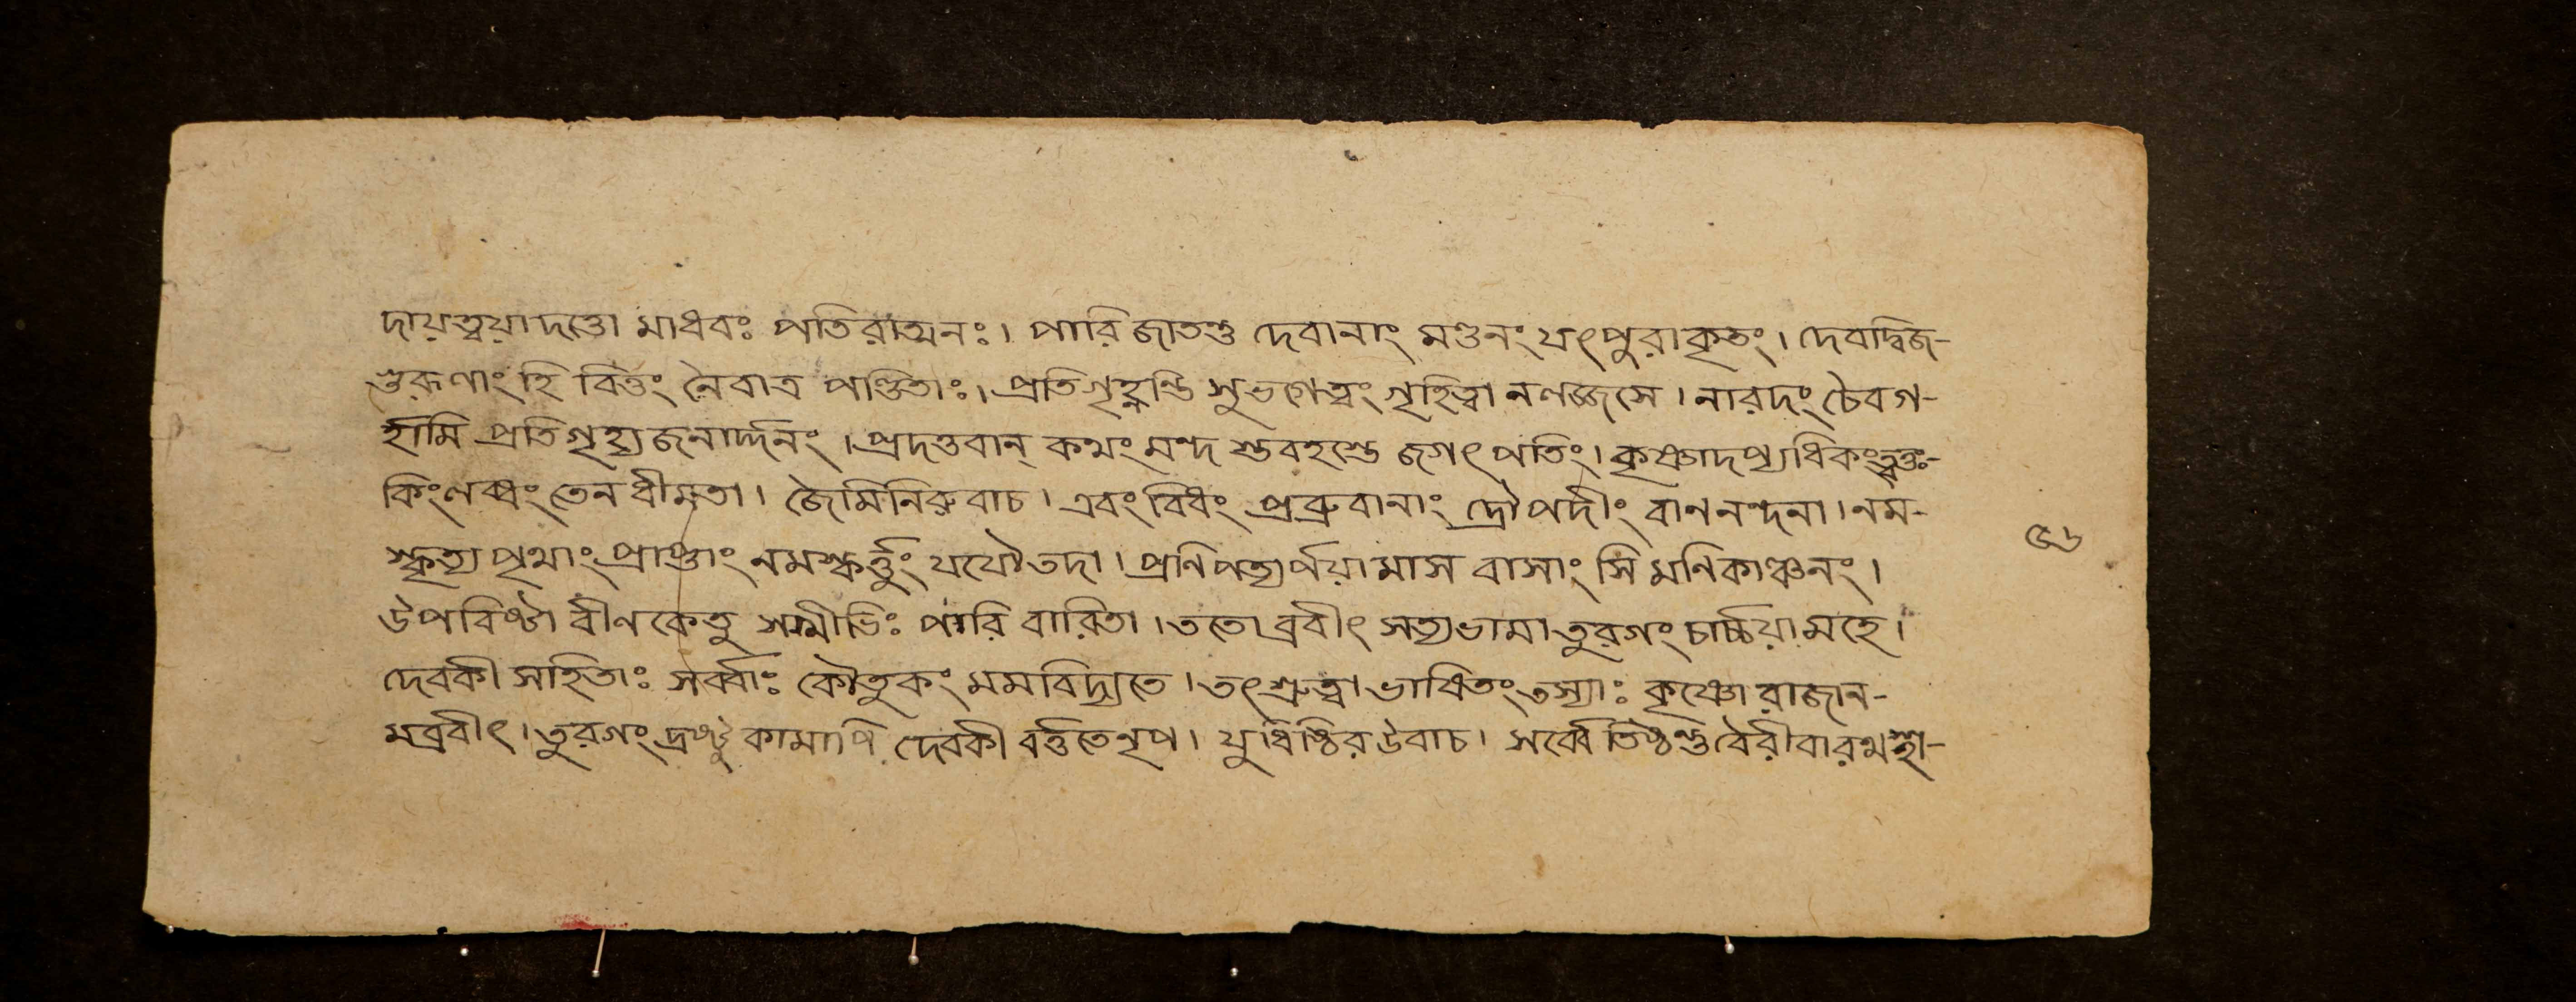 দায়ত্বয়াদত্তো মাধবঃ পতিরাত্মনঃ। পারিজাতস্তু দেবানাং মণ্ডনং যৎপুরাকৃতং। দেবদ্বিজ-
গুরূণাং হি বিত্তং নৈবাত্র পণ্ডিতাঃ। প্রতিগৃহ্ণন্তি সুভগেত্বং গৃহিত্বা নলজ্জসে। নারদং চৈবগ-
র্হামি প্রতিগৃহ্যজনার্দ্দনং। প্রদত্তবান্ কথং মন্দ স্তবহস্তে জগৎপতিং। কৃষ্ণাদপ্যধিকং
কিংলব্ধং তেনধীমতা। জৈমিনিরুবাচ। এবং বিধং প্রব্রুবানাং দ্রৌপদীং বাণনন্দনা। নম-
স্কৃত্য পৃথাং প্রাপ্তাং নমস্কর্ত্তুং যযৌতদা। প্রণিপত্যর্পয়ামাস বাসাংসি মণিকাঞ্চনং।
উপবিষ্টা বীণকেতু সখীভিঃ পারিবারিতা। ততোব্রবীৎ সত্যভামা তুরগং চার্চ্চয়ামহে।
দেবকী সাহিতাঃ সর্ব্বাঃ কৌতুকং মমবিদ্যতে। তৎশ্রুত্বা ভাষিতং তস্যাঃ কৃষ্ণো রাজান-
মব্রবীৎ। তুরগং দ্রষ্টুকামাপি দেবকী বর্ত্ততেনৃপ। যুধিষ্ঠিরউবাচ। সর্ব্বে তিষ্ঠন্তু বৈরীবারথ
৫৬